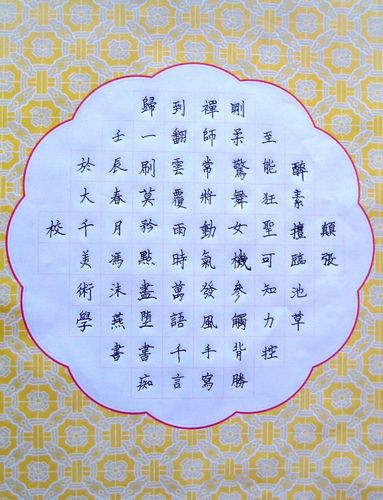 顛張
醉素擅臨池草
至能狂聖可知力控
剛柔驚舞女機參觸背勝
禪師常將動氣發風手寫
到翻雲覆雨時萬語千言
歸一刷莫矜點盡墮書痴
壬辰春月馮沫燕書
於大千美術學
校